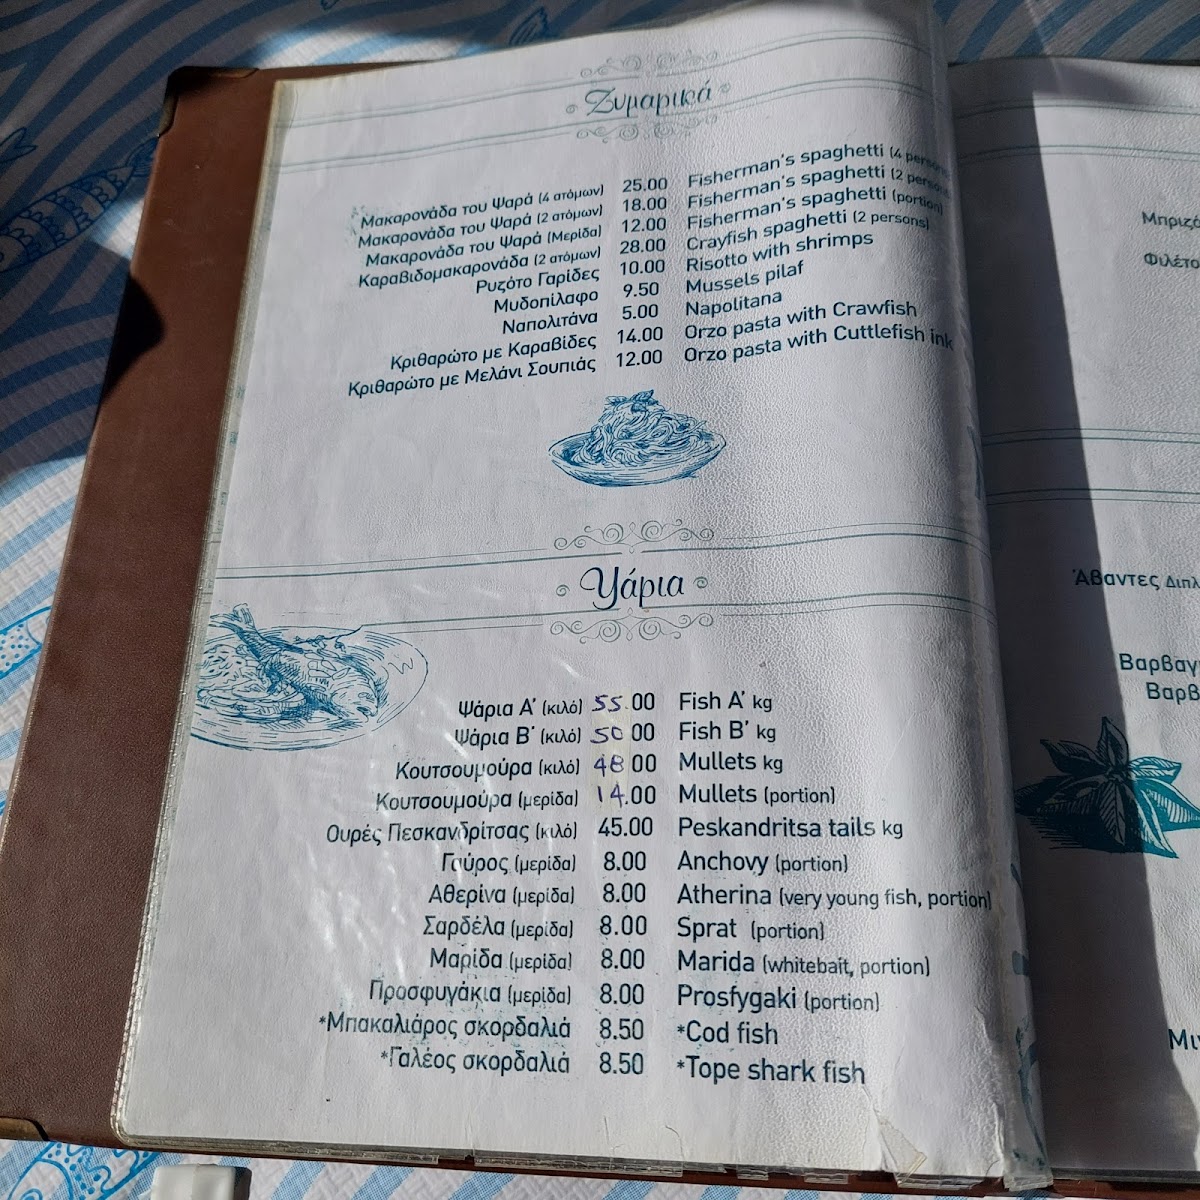 Ζυμαρικά
Μακαρονάδα του Ψαρά (4 ατόμων) 25.00 Fisherman's spaghetti (4 persons
Μακαρονάδα του Ψαρά (2 ατόμων) 18.00 Fisherman's spaghetti (2 persons
Μακαρονάδα του Ψαρά (Μερίδα) 12.00 Fisherman's spaghetti (portion)
Καραβιδομακαρονάδα (2 ατόμων) 28.00 Crayfish spaghetti (2 persons)
Ρυζότο Γαρίδες 10.00 Risotto with shrimps
Μυδοπίλαφο 9.50 Mussels pilaf
Ναπολιτάνα 5.00 Napolitana
Κριθαρώτο με Καραβίδες 14.00 Orzo pasta with Crawfish
Κριθαρώτο με Μελάνι Σουπιάς 12.00 Orzo pasta with Cuttlefish ink
Ψάρια
Ψάρια Α' (κιλό) 55.00 Fish A' kg
Ψάρια Β' (κιλό) 50 00 Fish B' kg
Κουτσουμούρα (κιλό) 48 00 Mullets kg
Κουτσουμούρα (μερίδα) 14.00 Mullets (portion)
Ουρές Πεσκανδρίτσας (κιλό) 45.00 Peskandritsa tails kg
Γαύρος (μερίδα) 8.00 Anchovy (portion)
Αθερίνα (μερίδα) 8.00 Atherina (very young fish, portion)
Σαρδέλα (μερίδα) 8.00 Sprat (portion)
Μαρίδα (μερίδα) 8.00 Marida (whitebait, portion)
Προσφυγάκια (μερίδα) 8.00 Prosfygaki (portion)
*Μπακαλιάρος σκορδαλιά 8.50 *Cod fish
*Γαλέος σκορδαλιά 8.50 *Tope shark fish
Μπριζό
Φιλέτο
Άβαντες Διπλ
Βαρβαγ
Βαρβ